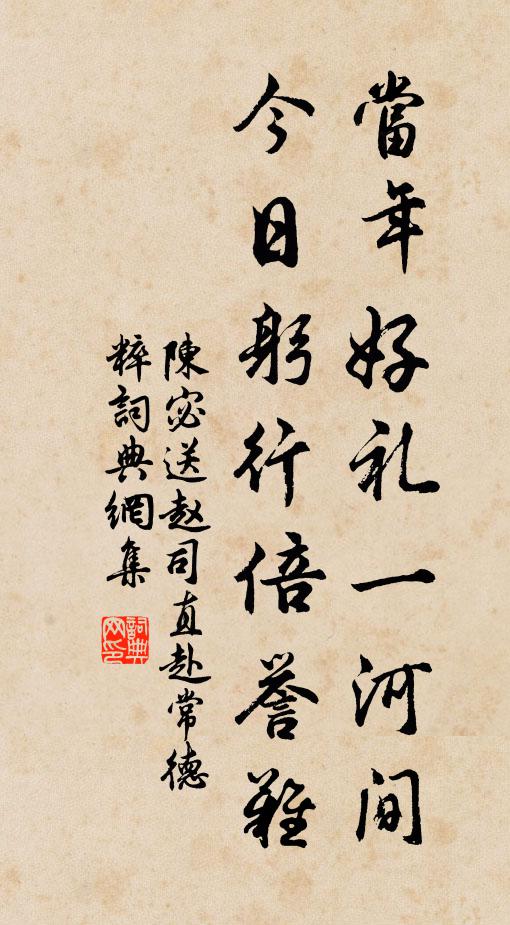 當年好礼一河间
今日躬行倍誉難
陳宓送赵司直赴常德
粹詞典網集
詞典网印